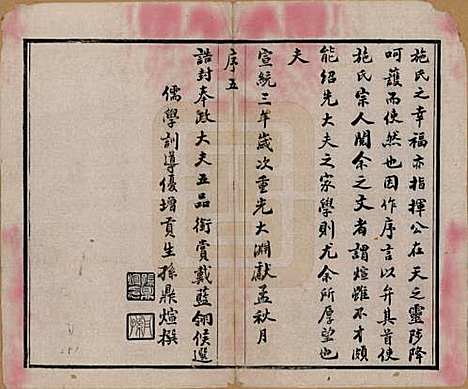 施氏之幸福亦指揮公在天之靈陟降
呵護而使然也因作序言以弁其首使
施氏宗人閱余之文者謂煊雖不才頗
能紹先大夫之家學則尤余所厚望也
夫
宣統三年歲次重光大淵獻孟秋月
序五
誥封奉政大夫五品銜賞戴藍翎候選
儒學訓導優增貢生孫鼎煊撰